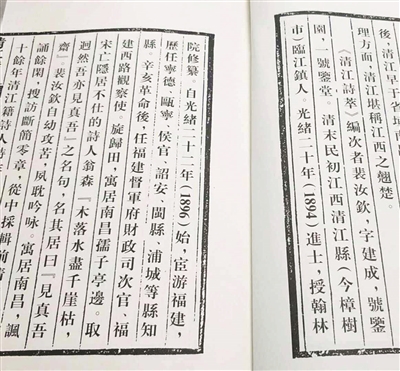 後，清江早于省
理方面，清江堪稱江西之翹楚。
《清江詩萃》編次者裴汝欽，字建成，號鑒
園，一號鑒堂。清末民初江西清江縣（今樟樹
市）臨江鎮人。光緒二十年（1894）進士，授翰林
院修纂。自光緒二十二年（1896）始，宦游福建，
歷任寧德、甌寧、侯官、詔安、閩縣、浦城等縣知
縣。辛亥革命後，任福建督軍府財政司次官、福
建西路觀察使。旋歸田，寓居南昌孺子亭邊。取
宋亡隱居不仕的詩人翁森“木落水盡千崖枯，
迥然吾亦見真吾”之名句，名其居曰“見真吾
齋”。裴汝欽自幼攻苦，夙耽吟咏。寓居南昌，諷
誦餘閑，搜訪斷簡零章，從中採輯前清
十餘年清江籍詩人詩